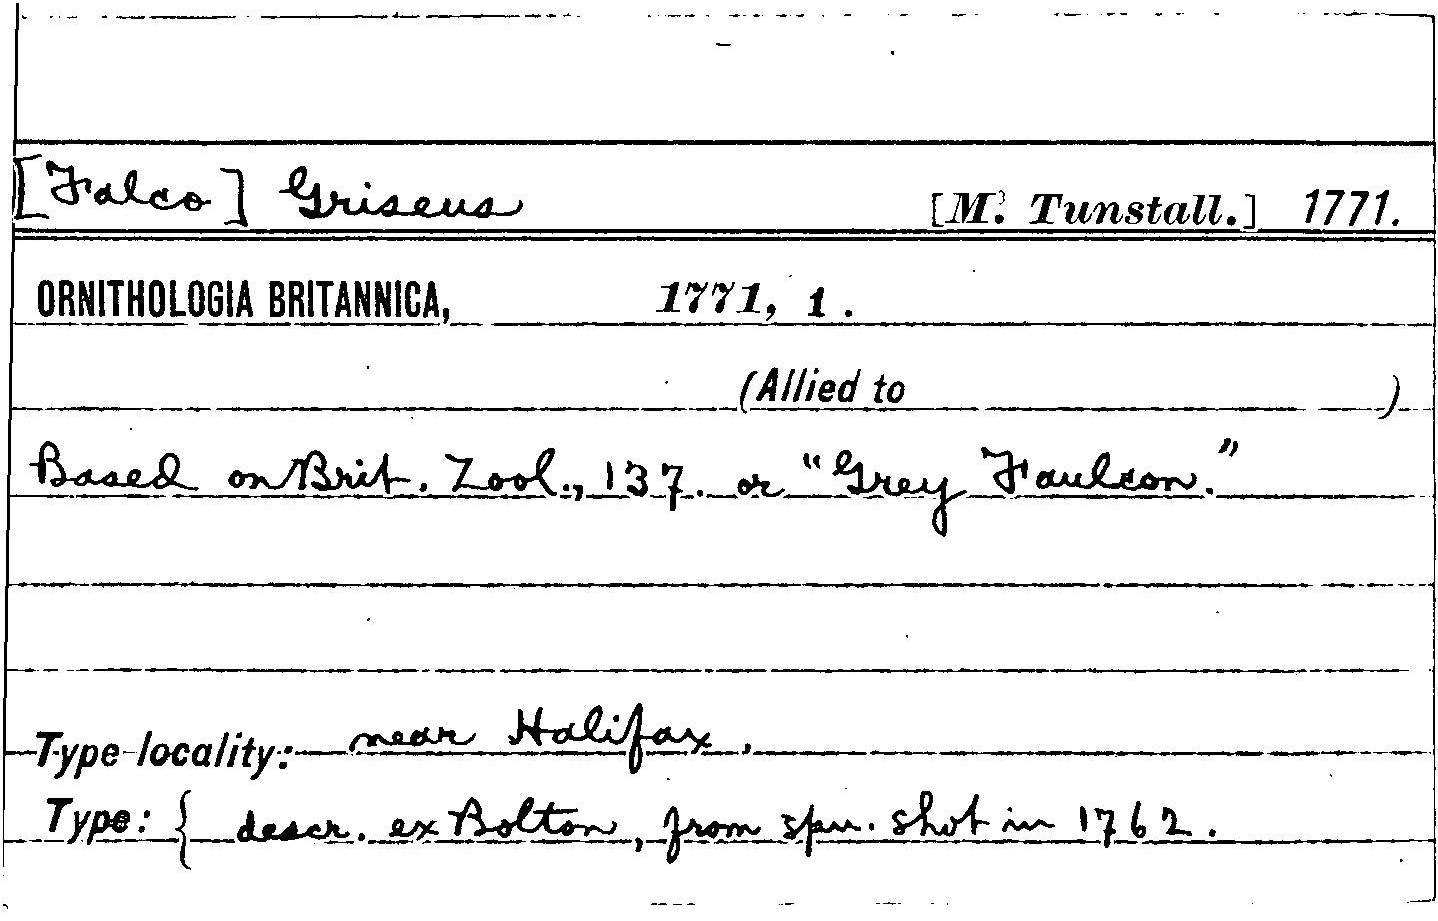 [Falco] Griseus [M. Tunstall.] 1771.
ORNITHOLOGIA BRITANNICA, 1771, 1.
(Allied to )
Based on Brit. Zool., 137. or "Grey Faulcon."
Type locality: near Halifax.
Type: { descr. ex Bolton, from spn. shot in 1762.